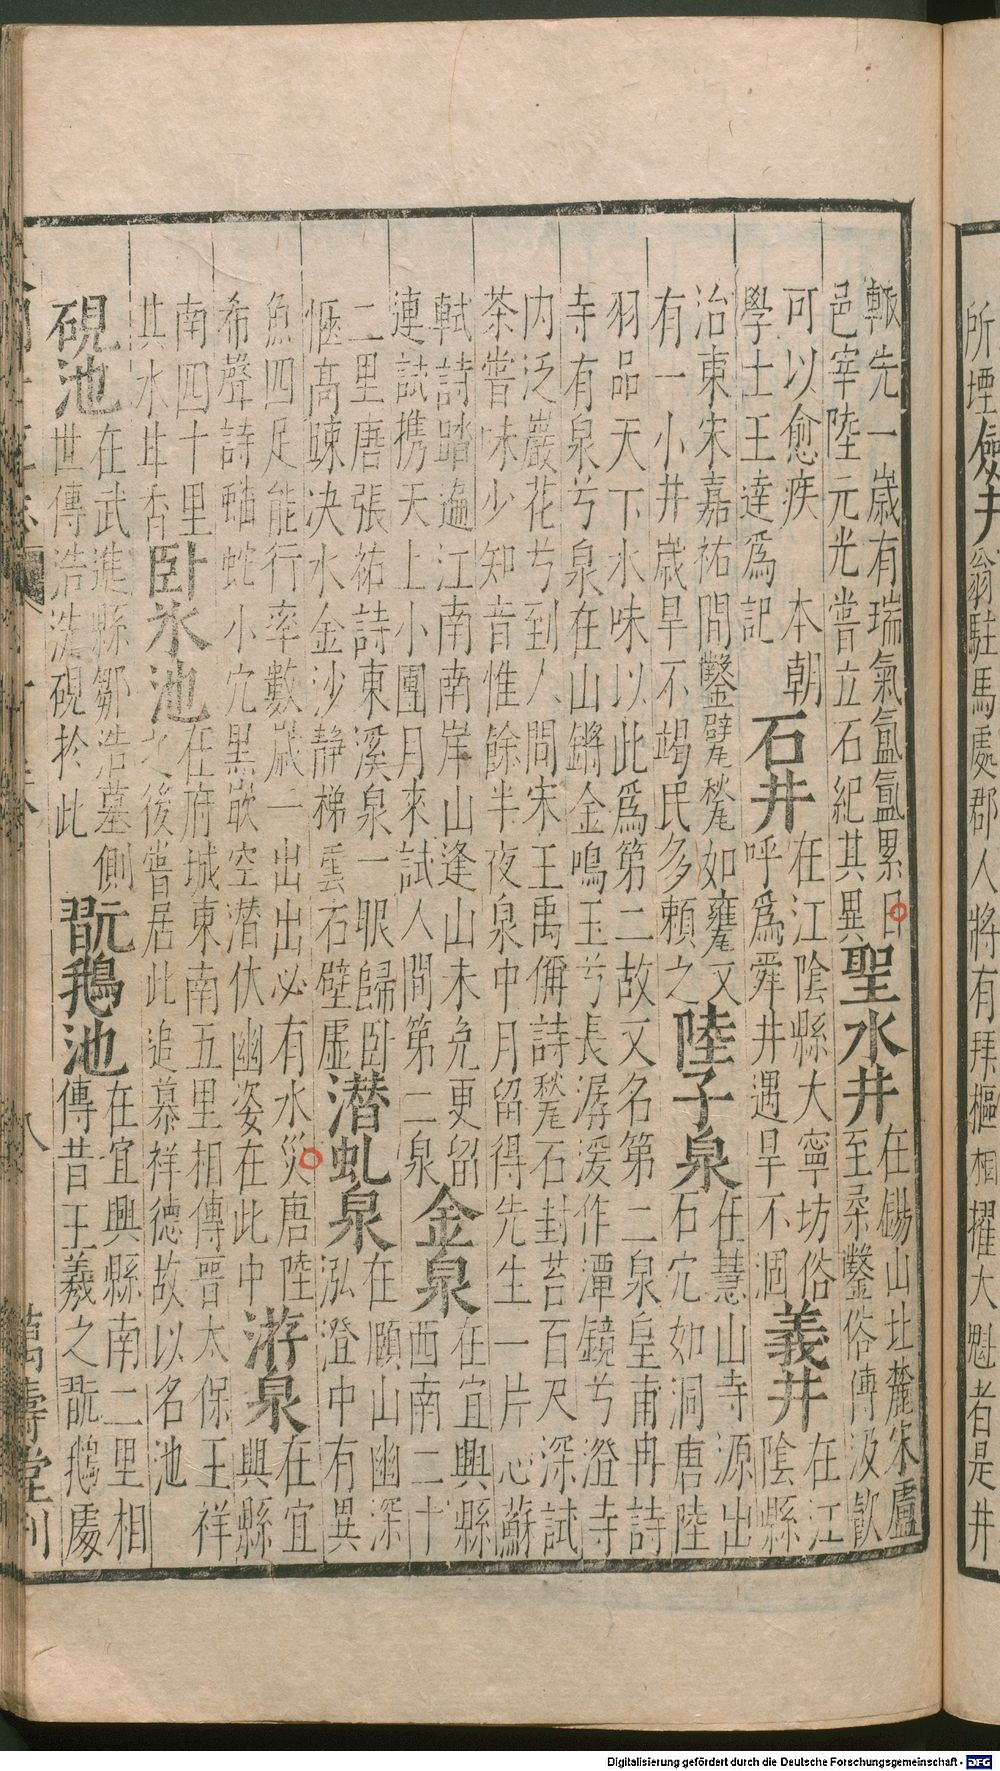 所堙劍井翁駐馬處郡人將有拜樞相擢大魁者是井
輙先一歲有瑞氣氤氳累日
邑宰陸元光嘗立石紀其異
聖水井
在錫山北麓宋盧
至柔鑿俗傳汲飲
可以愈疾 本朝
學士王達爲記
石井
在江陰縣大寧坊俗
呼爲舜井遇旱不涸
義井
在江
陰縣
治東宋嘉祐間鑿甃如甕又
有一小井歲旱不竭民多賴之
陸子泉
在慧山寺源出
石穴如洞唐陸
羽品天下水味以此爲第二故又名第二泉皇甫冉詩
寺有泉兮泉在山鏘金鳴玉兮長潺湲作潭鏡兮澄寺
内泛巖花兮到人間宋王禹偁詩甃石封苔百尺深試
茶嘗味少知音惟餘半夜泉中月留得先生一片心蘇
軾詩踏遍江南南岸山逢山未免更留
連試携天上小團月來試人間第二泉
金泉
在宜興縣
西南二十
二里唐張祐詩東溪泉一眼歸卧
愜高疎决水金沙靜梯雲石壁虛
潜虬泉
在顧山幽深
泓澄中有異
魚四足能行率數歲一出出必有水災唐陸
希聲詩蜿蛇小穴黑嵌空潜伏幽姿在此中
游泉
在宜
興縣
南四十里
其水甘香
卧氷池
在府城東南五里相傳晋太保王祥
之後嘗居此追慕祥德故以名池
硯池
在武進縣鄒浩墓側
世傳浩洗硯於此
翫鵝池
在宜興縣南二里相
傳昔王羲之翫鵝處
八
萬壽堂刊
Digitalisierung gefördert durch die Deutsche Forschungsgemeinschaft - DFG